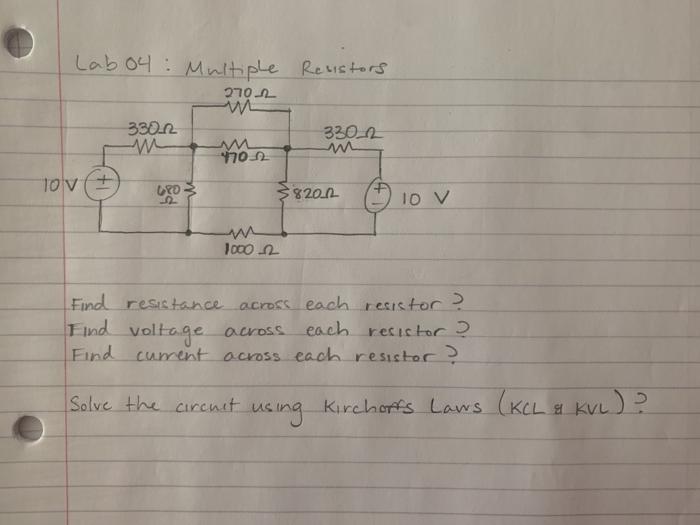 Lab 04 : Multiple Resistors
270 Ω
330 Ω
330 Ω
470 Ω
10 V
680 Ω
820 Ω
10 V
1000 Ω
Find resistance across each resistor ?
Find voltage across each resistor ?
Find current across each resistor ?
Solve the circuit using Kirchoffs Laws (KCL & KVL) ?